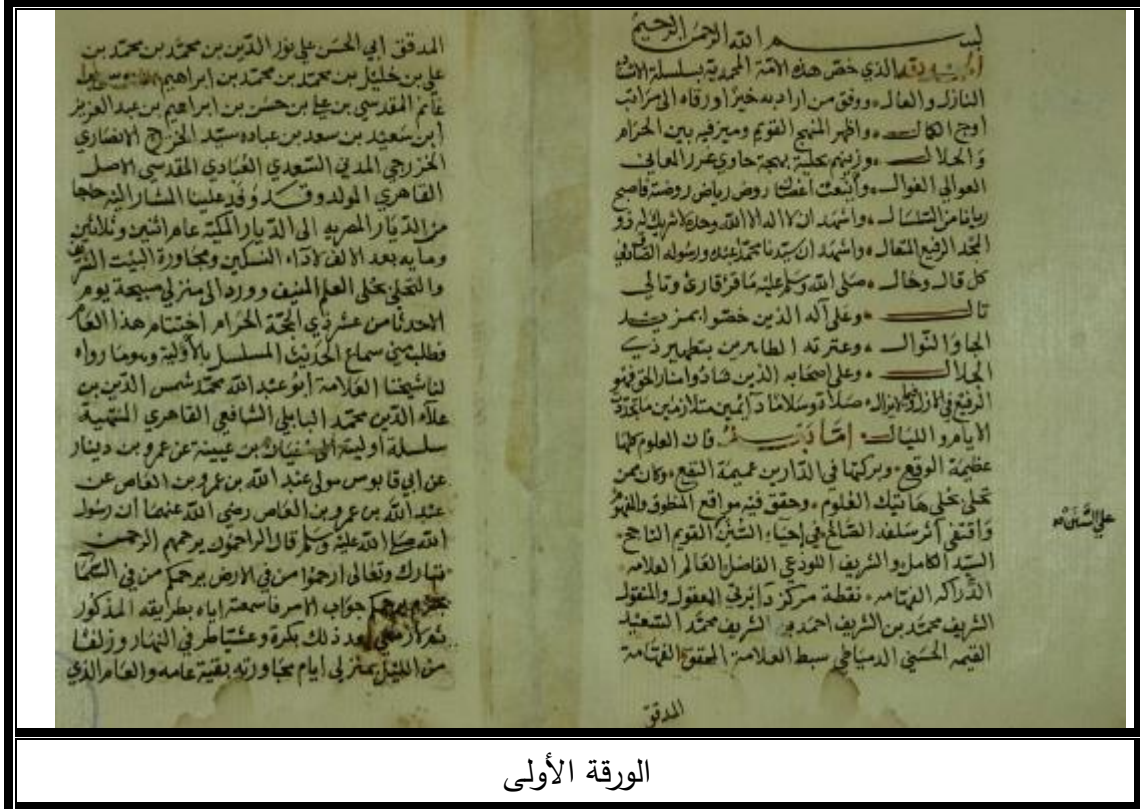 بســـــم الله الرحمن الرحيم
الحمد لله الذي خص هذه الامة المحمدية بسلسلة الاسناد
النازل والعال ووفق من اراد به خيرا ورقاه الى مراتب
اوج الكمال واظهر المنهج القويم وميز فيه بين الحرام
والحلال وزينهم بحلية بهجة حاوي غرر المعاني
العوالي الغوال وأينعت روض رياض روضة فاصبح
ريانا من السلسال واشهد ان لا اله الا الله وحده لا شريك له ذو
المجد الرفيع المتعال واشهد ان سيدنا محمدا عبده ورسوله الصادق في
كل قال وحال صلى الله وسلم عليه ما قرقارئ وتالى
تال وعلى آله الذين خصوا بمزيد
الجاه والنوال وعترته الطاهرين بتطهير ذي
الجلال وعلى اصحابه الذين شادوا منار الحق فهو
الرفيع صلاة وسلاما دائمين متلازمين ما تجددت
الايام والليال اما بعد فان العلوم كلها
عظيمة الوقع وبركتها في الدارين عميمة النفع وكان ممن
تحلى بحلى هاتيك العلوم وحقق فيه مواقع المنطوق والمفهوم
واقتفى اثر سلفه الصالح في إحياء السنن القويم الناجح
السيد الكامل والشريف اللوذعي الفاضل العالم العلامه
الدراكه الفهامه نقطة مركز دائرتي المعقول والمنقول
الشريف محمد بن الشريف احمد بن الشريف محمد السعيد
القيمه الحسني الدمياطي سبط العلامة المحقق الفهامة
المدقق
على السنن
المدقق ابي الحسن علي نور الدين بن محمد بن محمد بن
علي بن خليل بن محمد بن محمد بن ابراهيم
غانم المقدسي بن علي بن حسن بن ابراهيم بن عبد العزيز
ابن سعيد بن سعد بن عباده سيد الخزرج الانصاري
الخزرجي المدني السعدي العبادي المقدسي الاصل
القاهري المولد وقد وفد علينا المشار اليه حاجا
من الديار المصريه الى الديار المكية عام اثنين وثلاثين
وما يه بعد الالف لاداء النسكين ومجاورة البيت الشريف
والتحلي بحلى العلم المنيف وورد الى منزلي صبيحة يوم
الاحد ثامن عشر ذي الحجة الحرام اختتام هذا العام
فطلب مني سماع الحديث المسلسل بالأولية وهو ما رواه
لنا شيخنا العلامة أبو عبد الله محمد شمس الدين بن
علاء الدين محمد البابلي الشافعي القاهري المنتهية
سلسلة اوليته الى سفيان بن عيينة عن عمرو بن دينار
عن ابي قابوس مولى عبد الله بن عمرو بن العاص عن
عبد الله بن عمرو بن العاص رضي الله عنهما ان رسول
الله صلى الله عليه وسلم قال الراحمون يرحمهم الرحمن
تبارك وتعالى ارحموا من في الارض يرحمكم من في السما
يرحمكم جواب الامر فاسمعته اياه بطريقه المذكور
بعد ذلك بكرة وعشيا طرفي النهار وزلفا
من الليل بمنزلي ايام مجاورته بقية عامه والعام الذي
الورقة الأولى